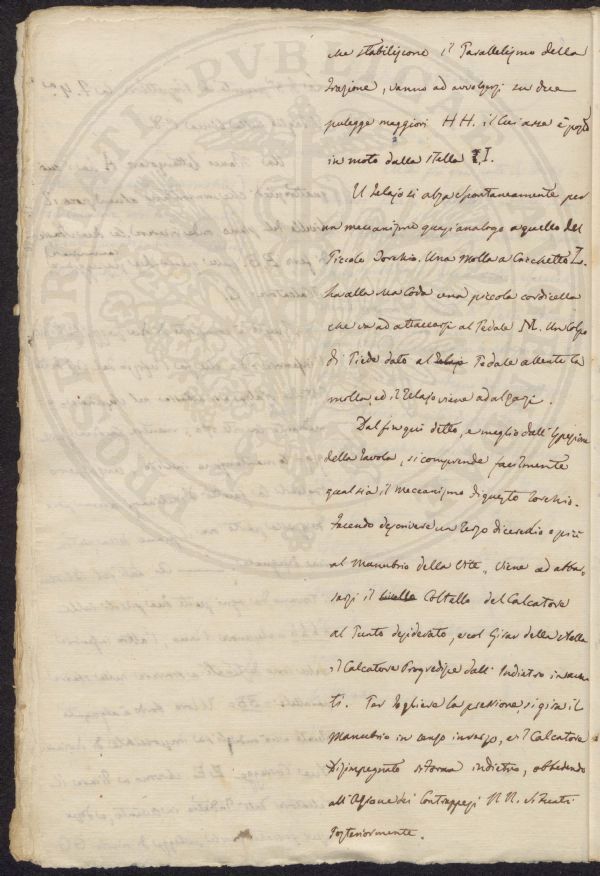 che stabiliscono il Parallelismo della
trazione, vanno ad avvolgersi su due
pulegge maggiori H H. il Cui asse è posto
in moto dalla stella I.
Il Telajo si alza spontaneamente per
un meccanismo quasi analogo a quello del
Piccolo Torchio. Una molla a Crochetto L.
ha alla sua Coda una piccola cordicella
che va ad attaccarsi al Pedale M. Un Colpo
di Piede dato al Telajo Pedale allenta la
molla, ed il Telajo viene ad alzarsi.
Dal fin quì detto, e meglio dall'Ispezione
della Tavola, si comprende facilmente
qual sia il meccanismo di questo Torchio.
Facendo descrivere un terzo di cerchio o più
al Manubrio della Vite, viene ad abbas-
sarsi il Coltello del Calcatore
al Punto desiderato, e col Girar della stella
il Calcatore Progredisce dall'Indietro in avan-
ti. Per togliere la pressione, si gira il
Manubrio in senso inverso, e il Calcatore
Disimpegnato ritorna indietro, obbedendo
all'Azione dei Contrappesi N N. situati
Posteriormente.
PUBLICA
PERUSIAE